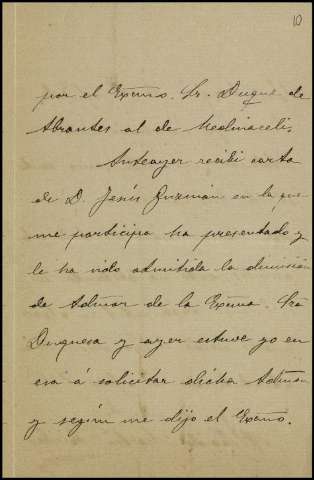 10
por el Excmo. Sr. Duque de
Abrantes al de Medinaceli.
Anteayer recibí carta
de D. Jesús Guzmán en la que
me participa ha presentado y
le ha sido admitida la dimisión
de Admor de la Excma. Sra
Duquesa y ayer estuve yo en
esa á solicitar dicha Admon
y según me dijo el Excmo.